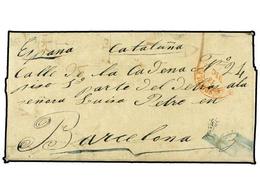 España Cataluña
Calle de la Cadena Nº 24
piso 3º Parto del detras ala
señora Luisa Petro en
Barcelona